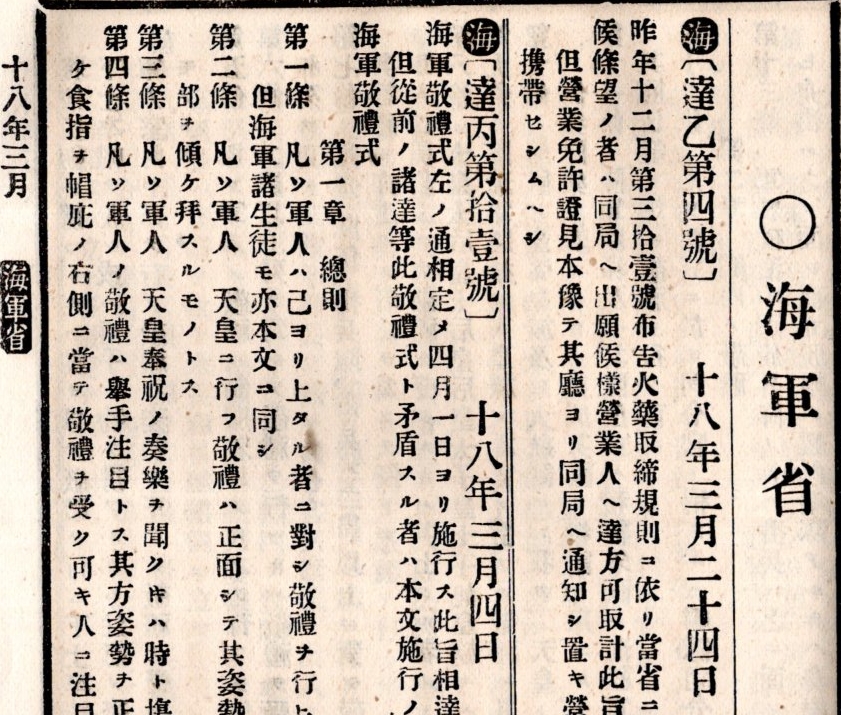 ○海軍省
海〔達乙第四號〕 十八年三月二十四日
昨年十二月第三拾壹號布吿火藥取締規則ニ依リ當省ニ
候條望ノ者ハ同局ヘ出願候樣營業人ヘ達方可取計此旨
但營業免許證見本豫テ其廳ヨリ同局ヘ通知シ置キ營
携帶セシムヘシ
海〔達丙第拾壹號〕 十八年三月四日
海軍敬禮式左ノ通相定メ四月一日ヨリ施行ス此旨相達
但從前ノ諸達等此敬禮式ト矛盾スル者ハ本文施行ノ
海軍敬禮式
第一章 總則
第一條 凡ソ軍人ハ己ヨリ上タル者ニ對シ敬禮ヲ行ヒ
但海軍諸生徒モ亦本文ニ同シ
第二條 凡ソ軍人 天皇ニ行フ敬禮ハ正面シテ其姿勢
部ヲ傾ケ拜スルモノトス
第三條 凡ソ軍人 天皇奉祝ノ奏樂ヲ聞クキハ時ト塲
第四條 凡ソ軍人ノ敬禮ハ擧手注目トス其方姿勢ヲ正
ケ食指ヲ帽庇ノ右側ニ當テ敬禮ヲ受ク可キ人ニ注目
十八年三月 海軍省